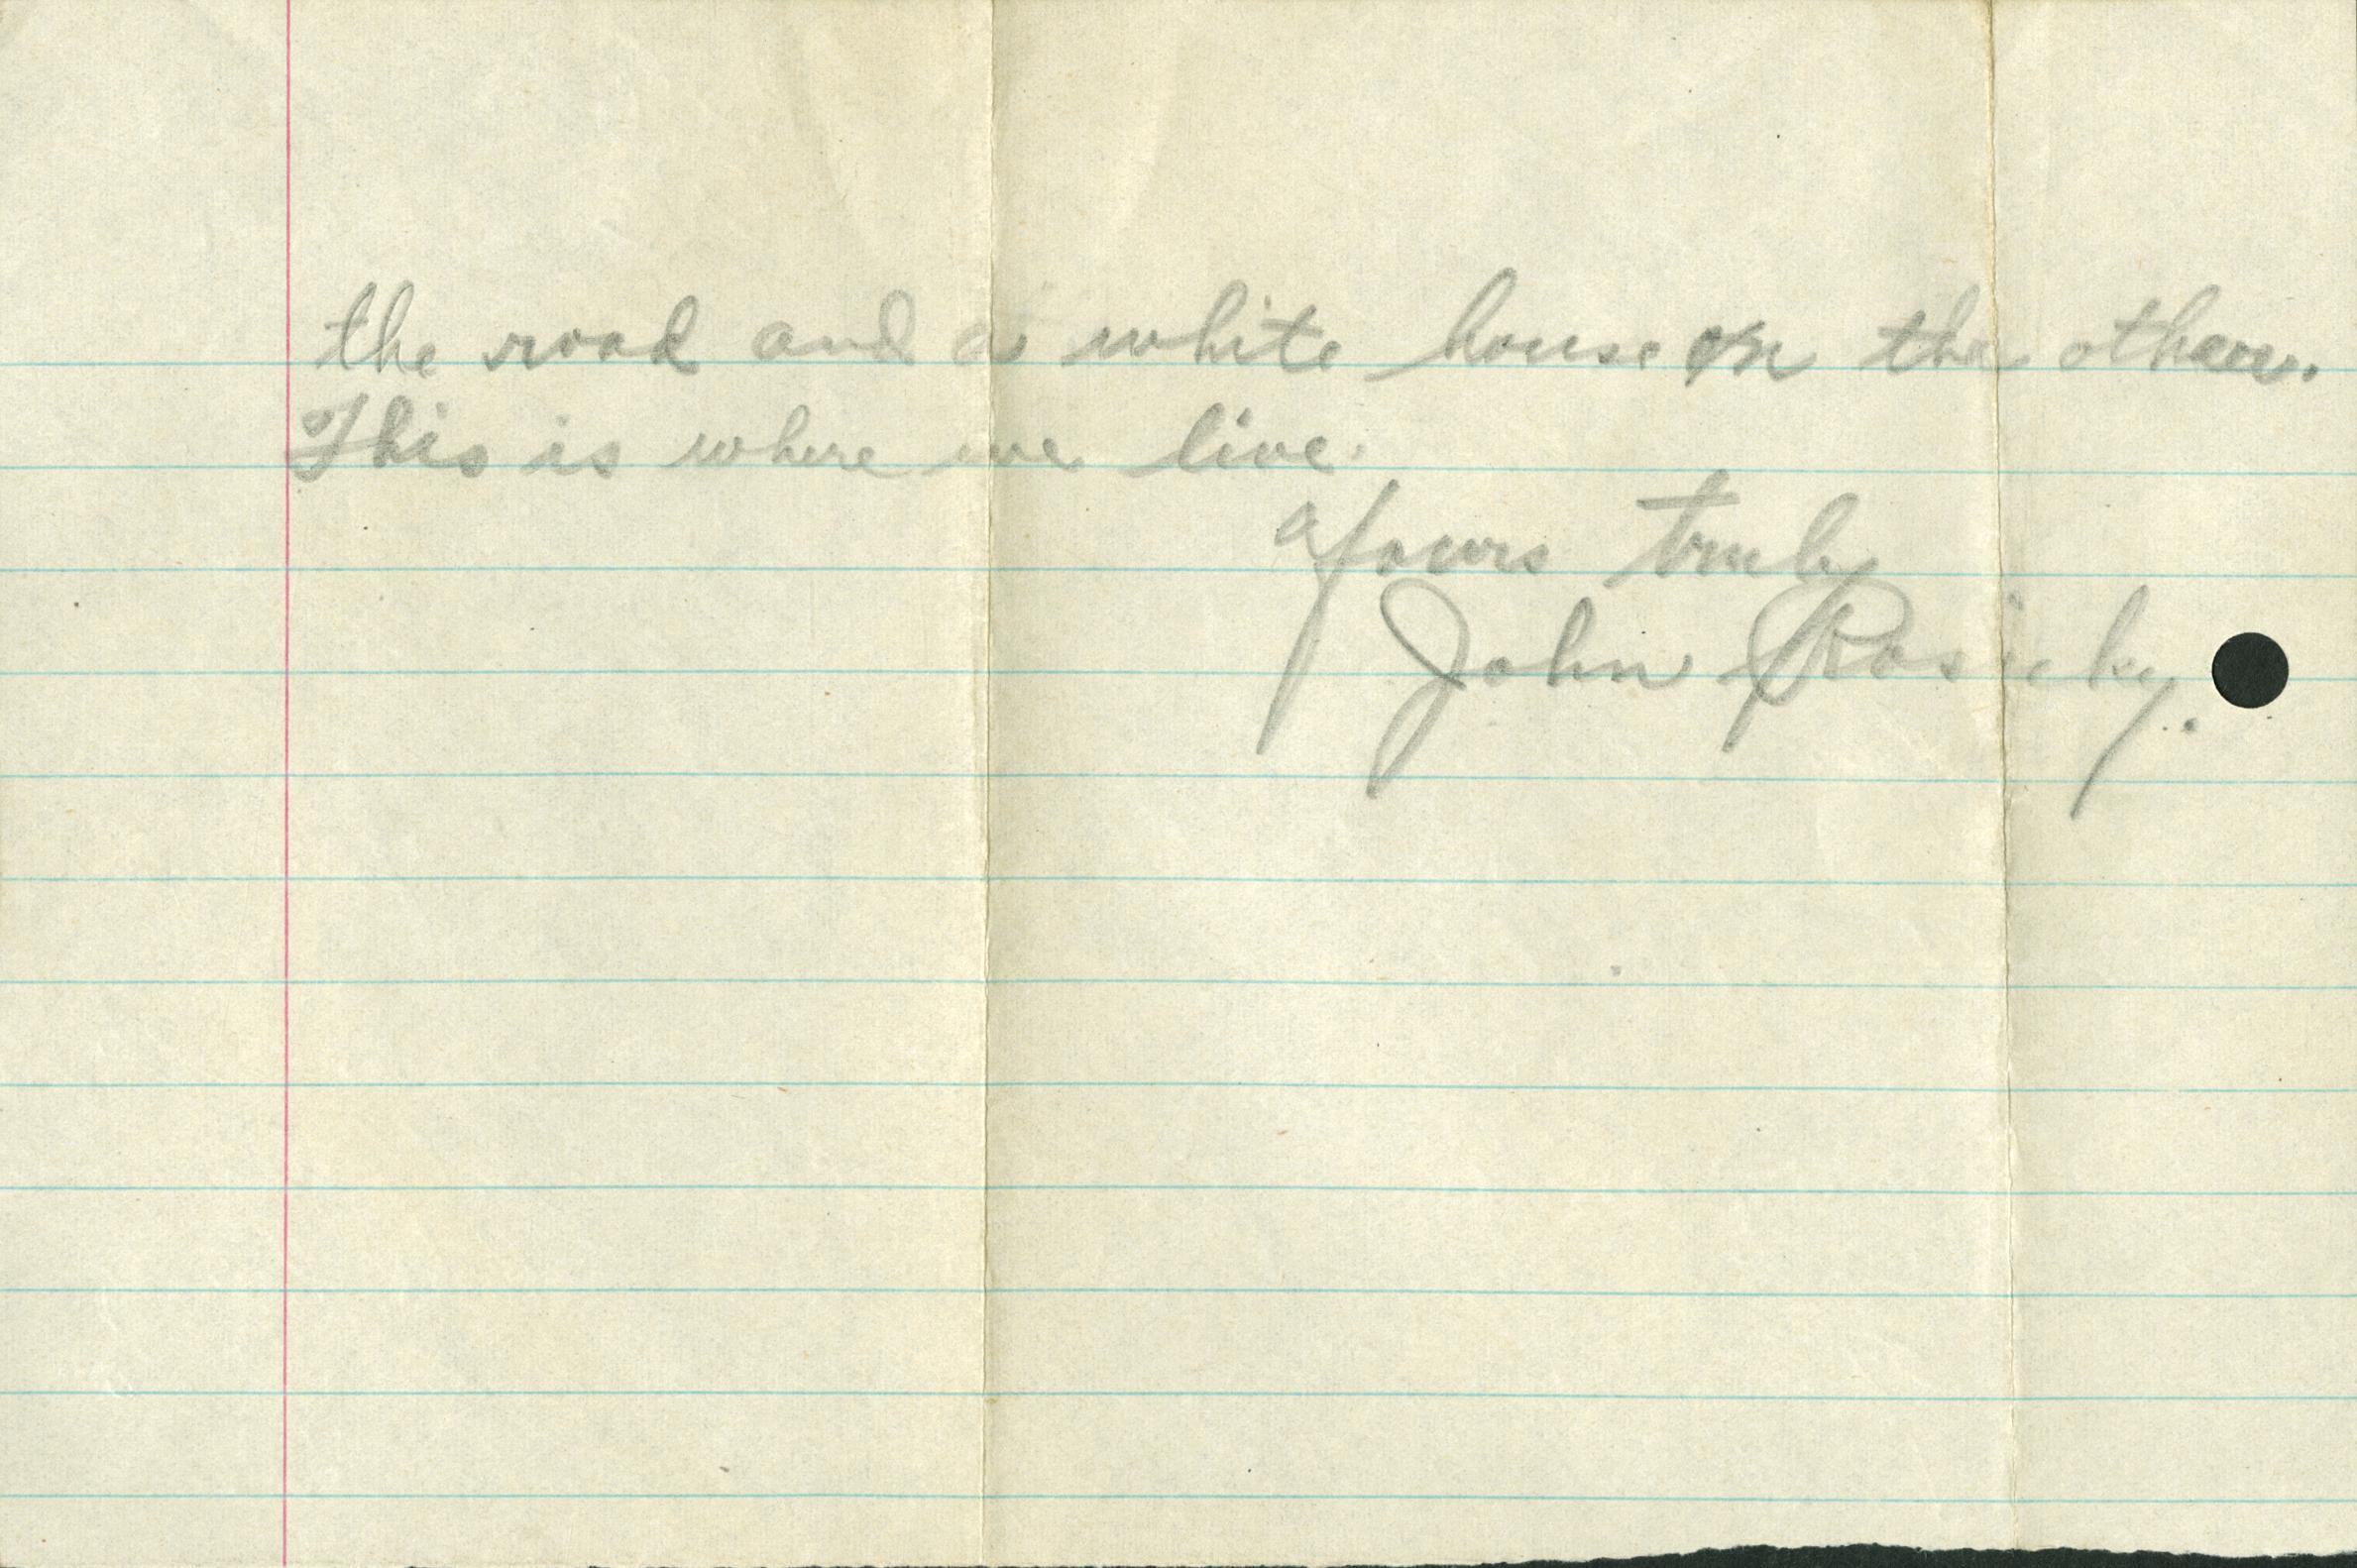 the road and a white house on the other.
This is where we live.
Yours truly
John Rosicky.